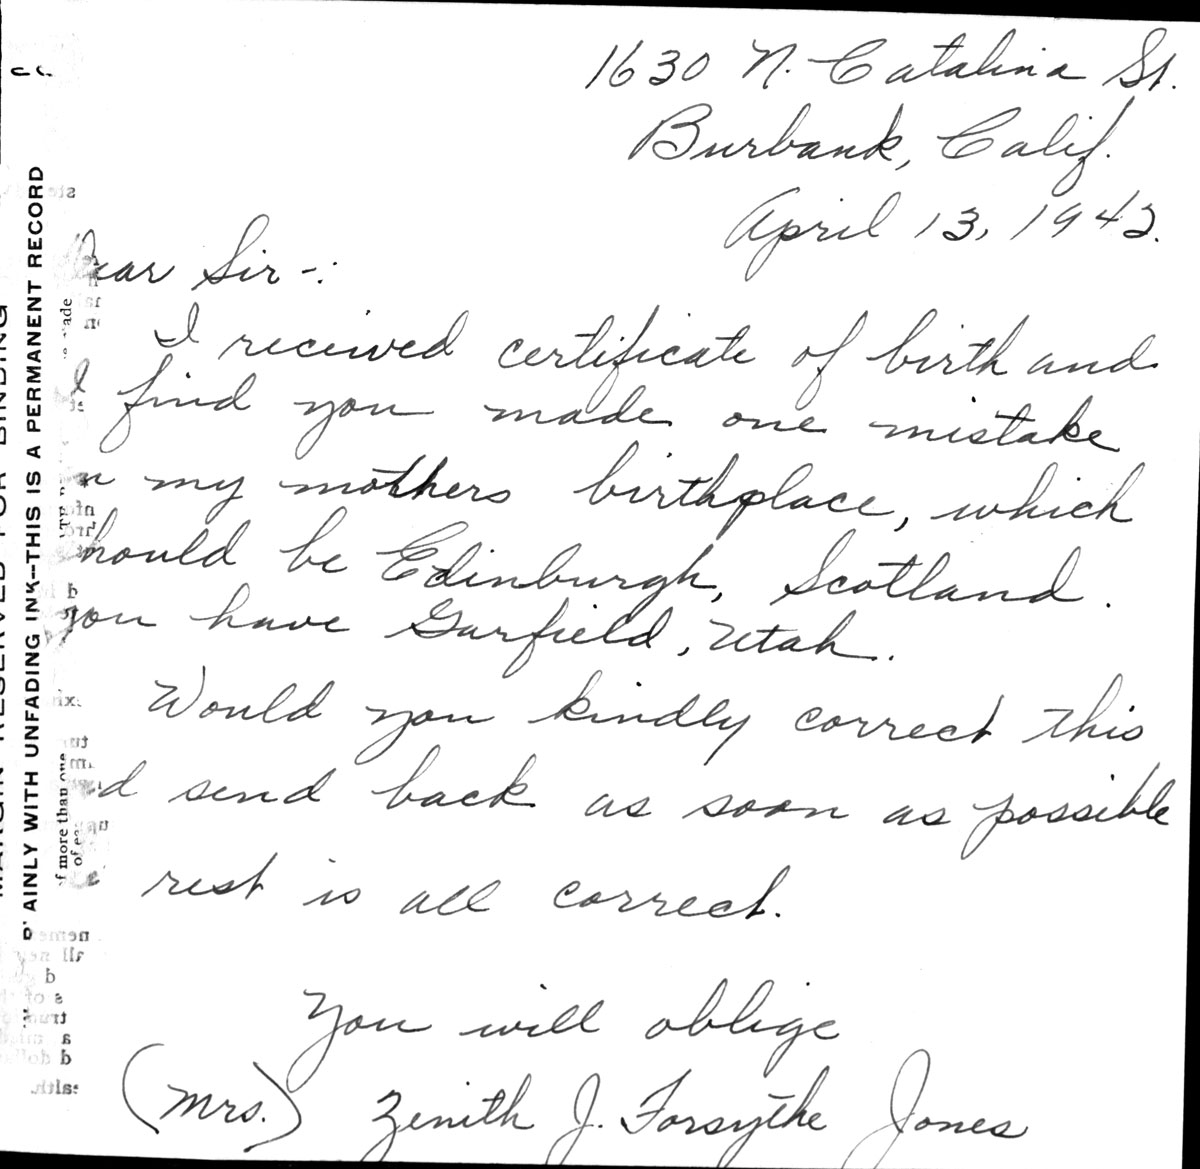 1630 N. Catalina St.
Burbank, Calif.
April 13, 1942.
Dear Sir -:
I received certificate of birth and
I find you made one mistake
n my mothers birthplace, which
hould be Edinburgh, Scotland.
you have Garfield, Utah.
Would you kindly correct this
d send back as soon as possible
rest is all correct.
You will oblige
(Mrs.) Zenith J. Forsythe Jones
AINLY WITH UNFADING INK—THIS IS A PERMANENT RECORD
MARGIN RESERVED FOR BINDING
of more than one